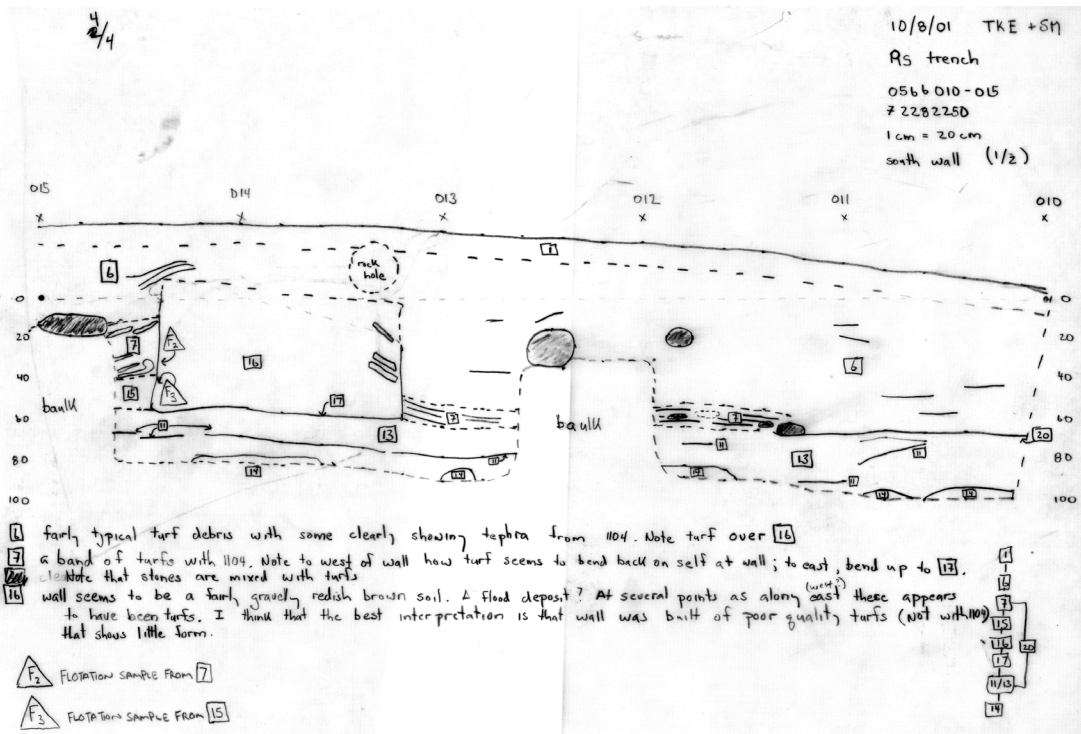 4/4
10/8/01 TKE + SM
Rs trench
0566 010-015
7228 2250
1 cm = 20 cm
south wall (1/2)
015 014 013 012 011 010
1
6
rock hole
0 0
20 20
7 F2
16
6
40 40
15 F3
17
baulk
60 7 7
11 13 baulk 20
11 13 11
80 80
14 14 11 14 11
14 14
100 100
6 fairly typical turf debris with some clearly showing tephra from 1104. Note turf over 16
7 a band of turfs with 1104. Note to west of wall how turf seems to bend back on self at wall; to east, bend up to 17.
Note that stones are mixed with turfs
16 wall seems to be a fairly gravely redish brown soil. A flood deposit? At several points as along east (west?) there appears
to have been turfs. I think that the best interpretation is that wall was built of poor quality turfs (Not with 1104)
that shows little form.
F2 FLOTATION SAMPLE FROM 7
F3 FLOTATION SAMPLE FROM 15
1
6
7
15
16
20
17
11/13
14